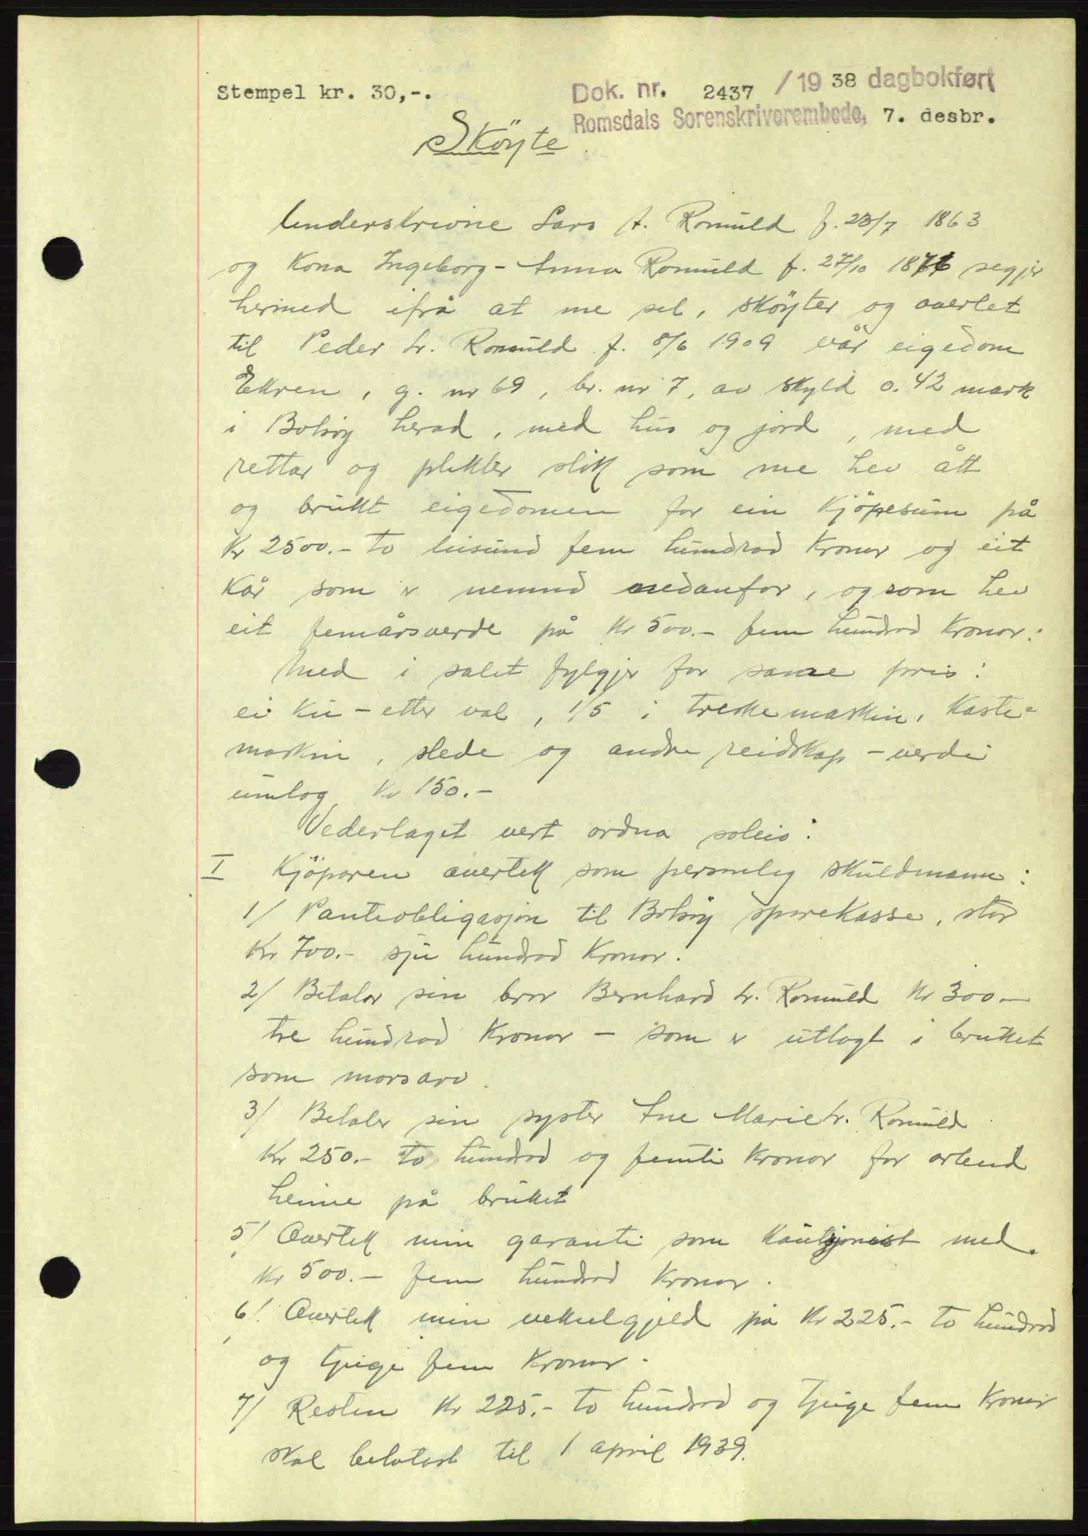 Stempel kr. 30,-.
Dok. nr. 2437 /19 38 dagbokført
Romsdals Sorenskriverembede, 7. desbr.
Sköyte
Underskrivne Lars A. Romuld f. 23/7 1863
og Kona Ingeborg-Anna Romuld f. 27/10 1876 segjer
hermed ifrå at me sel, sköyter og averlet
til Peder L. Romuld f. 8/6 1909 vår eigedom
Ekren, g. nr 69, br. nr 7, av skyld 0.42 mark
i Bolsöy herad, med hus og jord, med
rettar og plikter slik som me hev ått
og brukt eigedomen for ein Kjöpesum på
Kr 2500.- to tusund fem hundrad Kronor og eit
Kår som er nemnd nedanfor, og som hev
eit femårsverde på Kr 500.- fem hundrad Kronor.
Med i salet fylgjer for same pris:
ei Ku - etter val, 1/5 i treskemaskin, Kaste-
maskin, slede og andre reidskap - verdi
umlag Kr 150.-
Vederlaget vert ordna soleis:
I Kjöparen avertek som personleg skuldmann:
1/ Panteobligasjon til Bolsöy sparekasse, stor
Kr 700.- sju hundrad Kronor.
2/ Betaler sin bror Bernhard L. Romuld Kr 300.-
tre hundrad Kronor - som er utlagt i bruket
som morsarv.
3/ Betaler sin syster Ane Marie L. Romuld
Kr 250.- to hundrad og femti Kronor for arbeid
heime på bruket
5/ Avertek min garanti som Kausjonist med
Kr 500.- fem hundrad Kronor.
6/ Avertek min vekselgjeld på Kr 225.- to hundrad
og tjuge fem Kronor.
7/ Resten Kr 225.- to hundrad og tjuge fem Kronor
skal betalast til 1 april 1939.